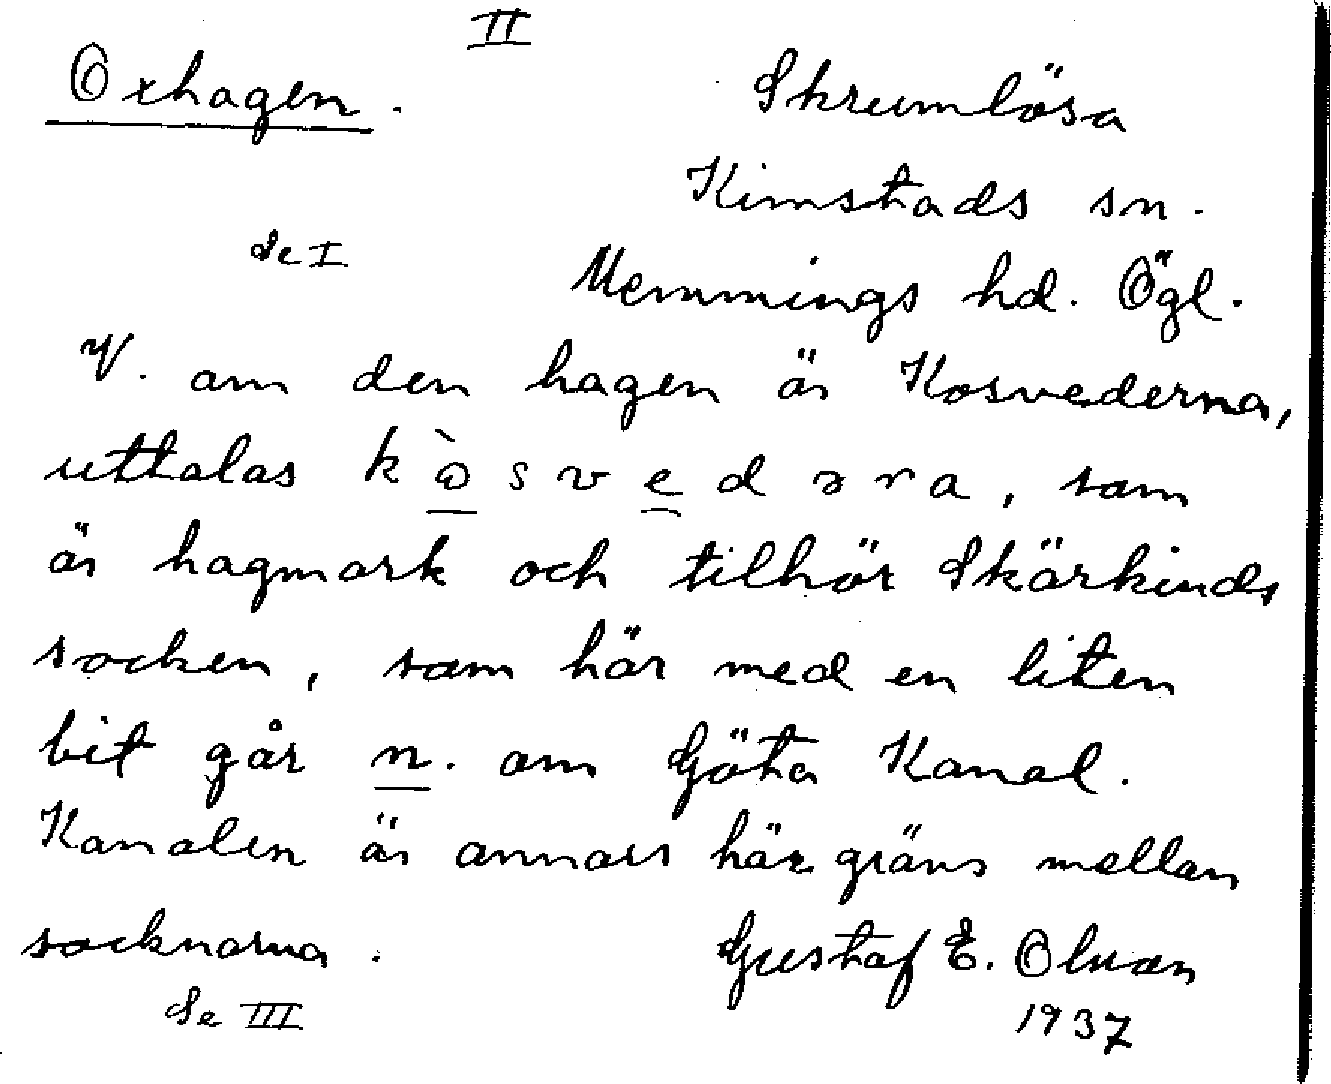 II
Oxhagen.
Skrumlösa
Kimstads sn.
Se I
Memmings hd. Ögl.
V. om den hagen är Kosvederna,
uttalas kòsvedəra, som
är hagmark och tillhör Skärkinds
socken, som här med en liten
bit går n. om Göta Kanal.
Kanalen är annars här gräns mellan
socknarna.
Gustaf E. Olsson
Se III
1937